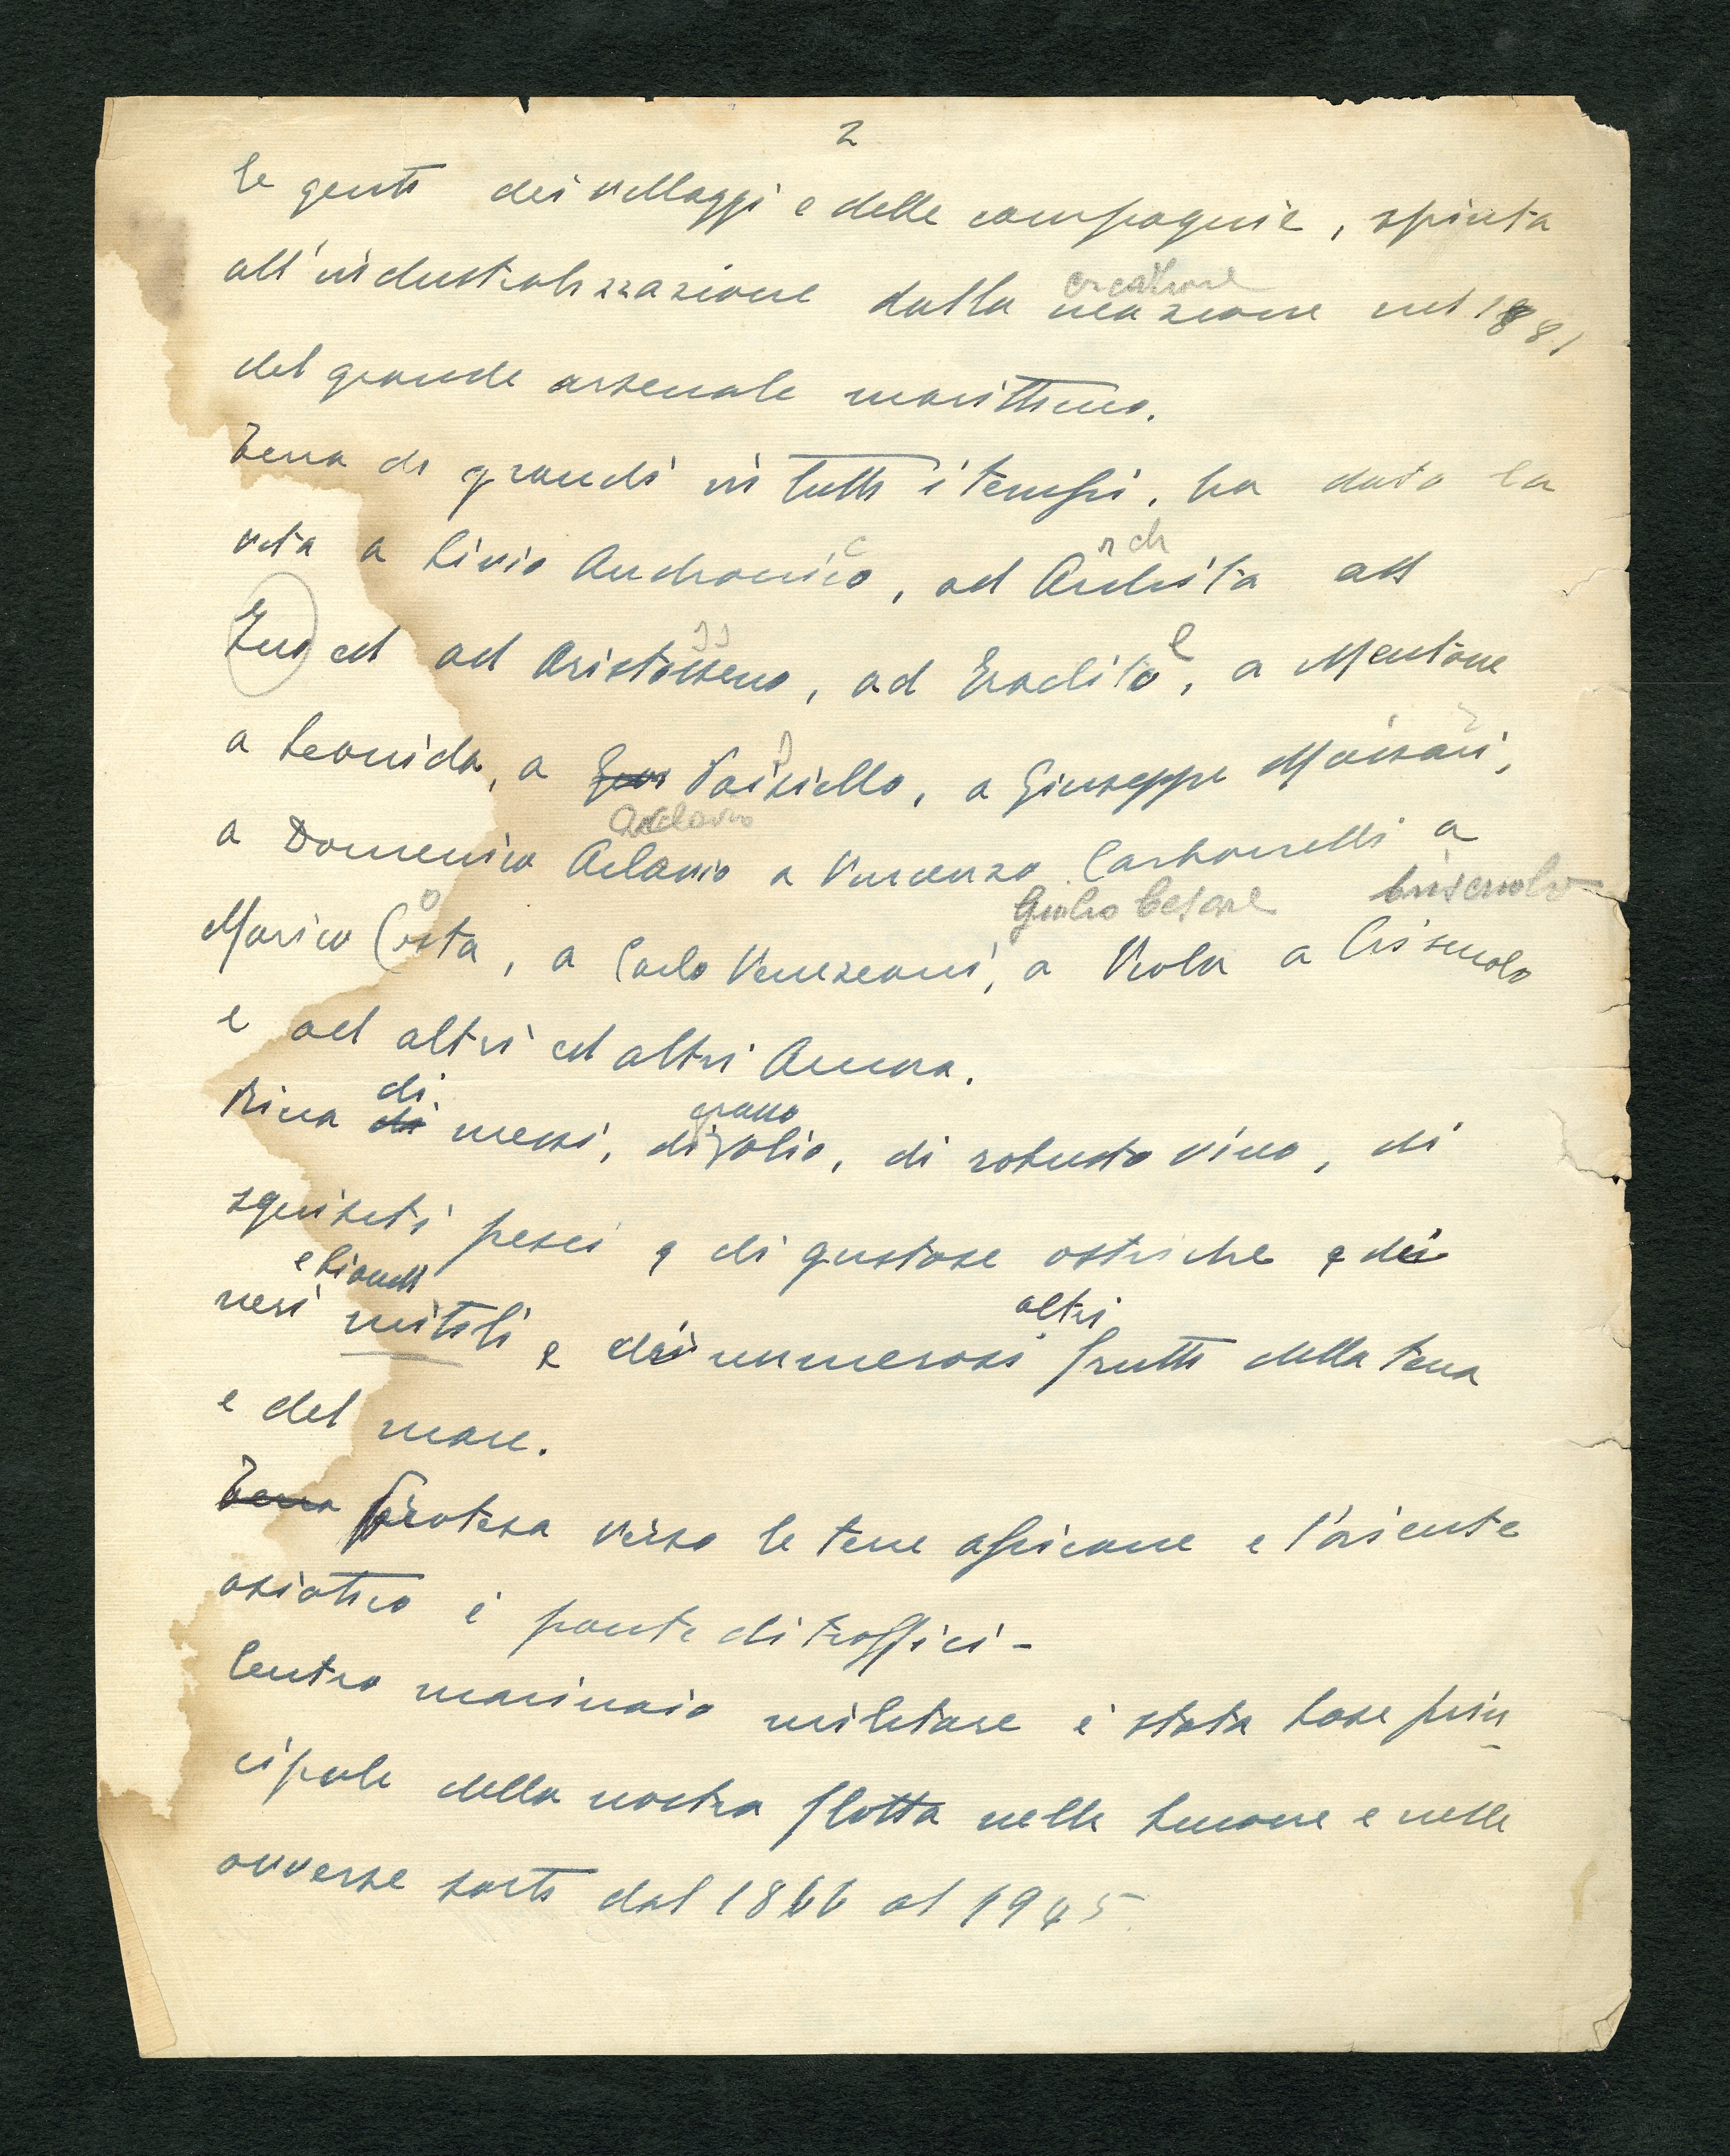 2
le genti dei villaggi e delle campagnie, spinta
creazione
all'industrializzazione dalla creazione nel 1881
del grande arsenale marittimo.
Terra di grandi in tutti i tempi, ha dato la
c rch
vita a Livio Andronico, ad Archita ad
ss e
ed ad Aristosseno, ad Eraclito, a Mentone
s
a Leonida, a Paisiello, a Giuseppe Massari,
a Domenico a Vincenzo Carbonelli a
o Giulio Cesare Criscuolo
Marico Costa, a Carlo Veneziani, a Viola a Criscuolo
e ad altri ed altri Ancora.
di grano
Ricca di messi, di olio, di robusto vino, di
squisiti pesci e di gustose ostriche e dei
e biondi altri
neri mitili e dei numerosi frutti della terra
e del mare.
Terra protesa verso le terre africane e l'oriente
asiatico è ponte di traffici -
Centro marinaio militare è stata base prin
cipale della nostra flotta nelle buone e nelle
avverse sorti dal 1866 al 1945.